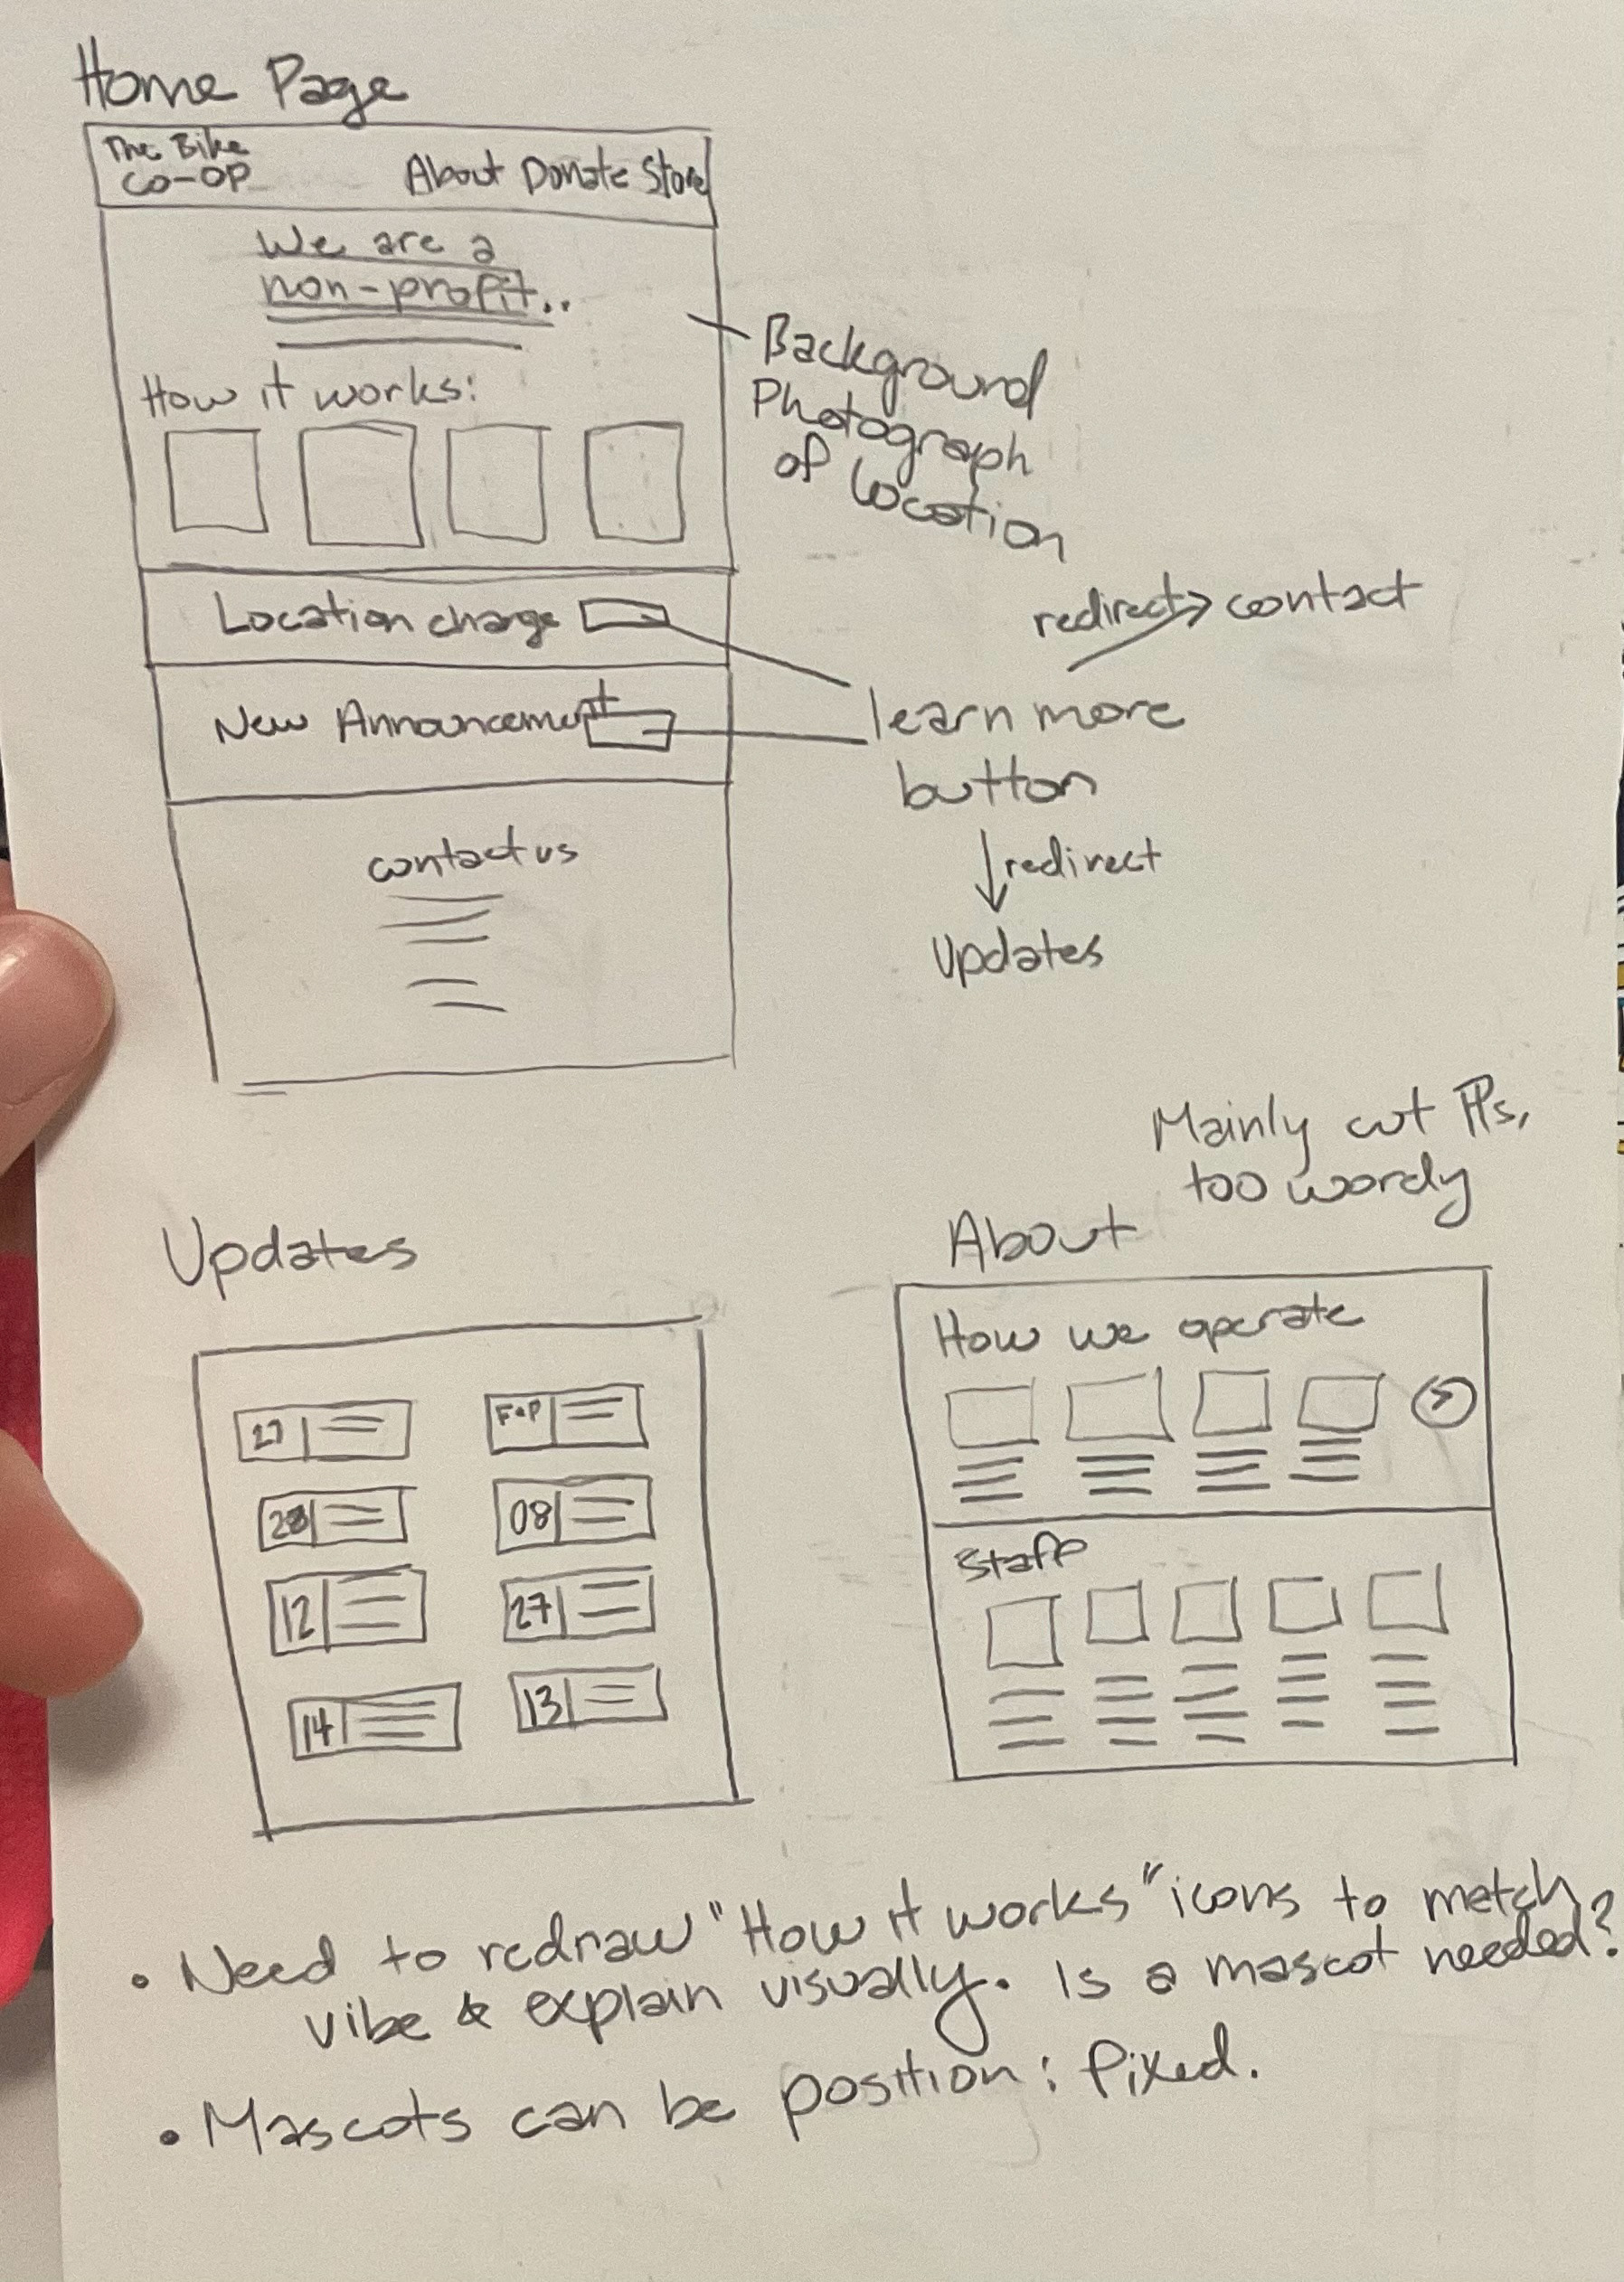 Home Page
The Bike
Co-OP
About Donate Store
We are a
non-profit..
How it works:
Background
Photograph
of Location
Location change
New Announcement
redirect → contact
learn more
button
redirect
Updates
contact us
Mainly cut ¶s,
too wordy
Updates
27
F&P
28
08
12
27
14
13
About
How we operate
>
Staff
• Need to redraw "How it works" icons to match
vibe & explain visually. Is a mascot needed?
• Mascots can be position: fixed.